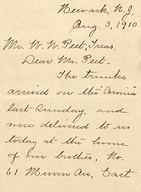 Newark, N.J.
Aug. 3, 1910
Mr. W. W. Peet, Treas.
Dear Mr. Peet-
The trunks
arrived on the
last Sunday, and
were delivered to us
today at the home
of our bodies, No.
61 Munn Ave, East